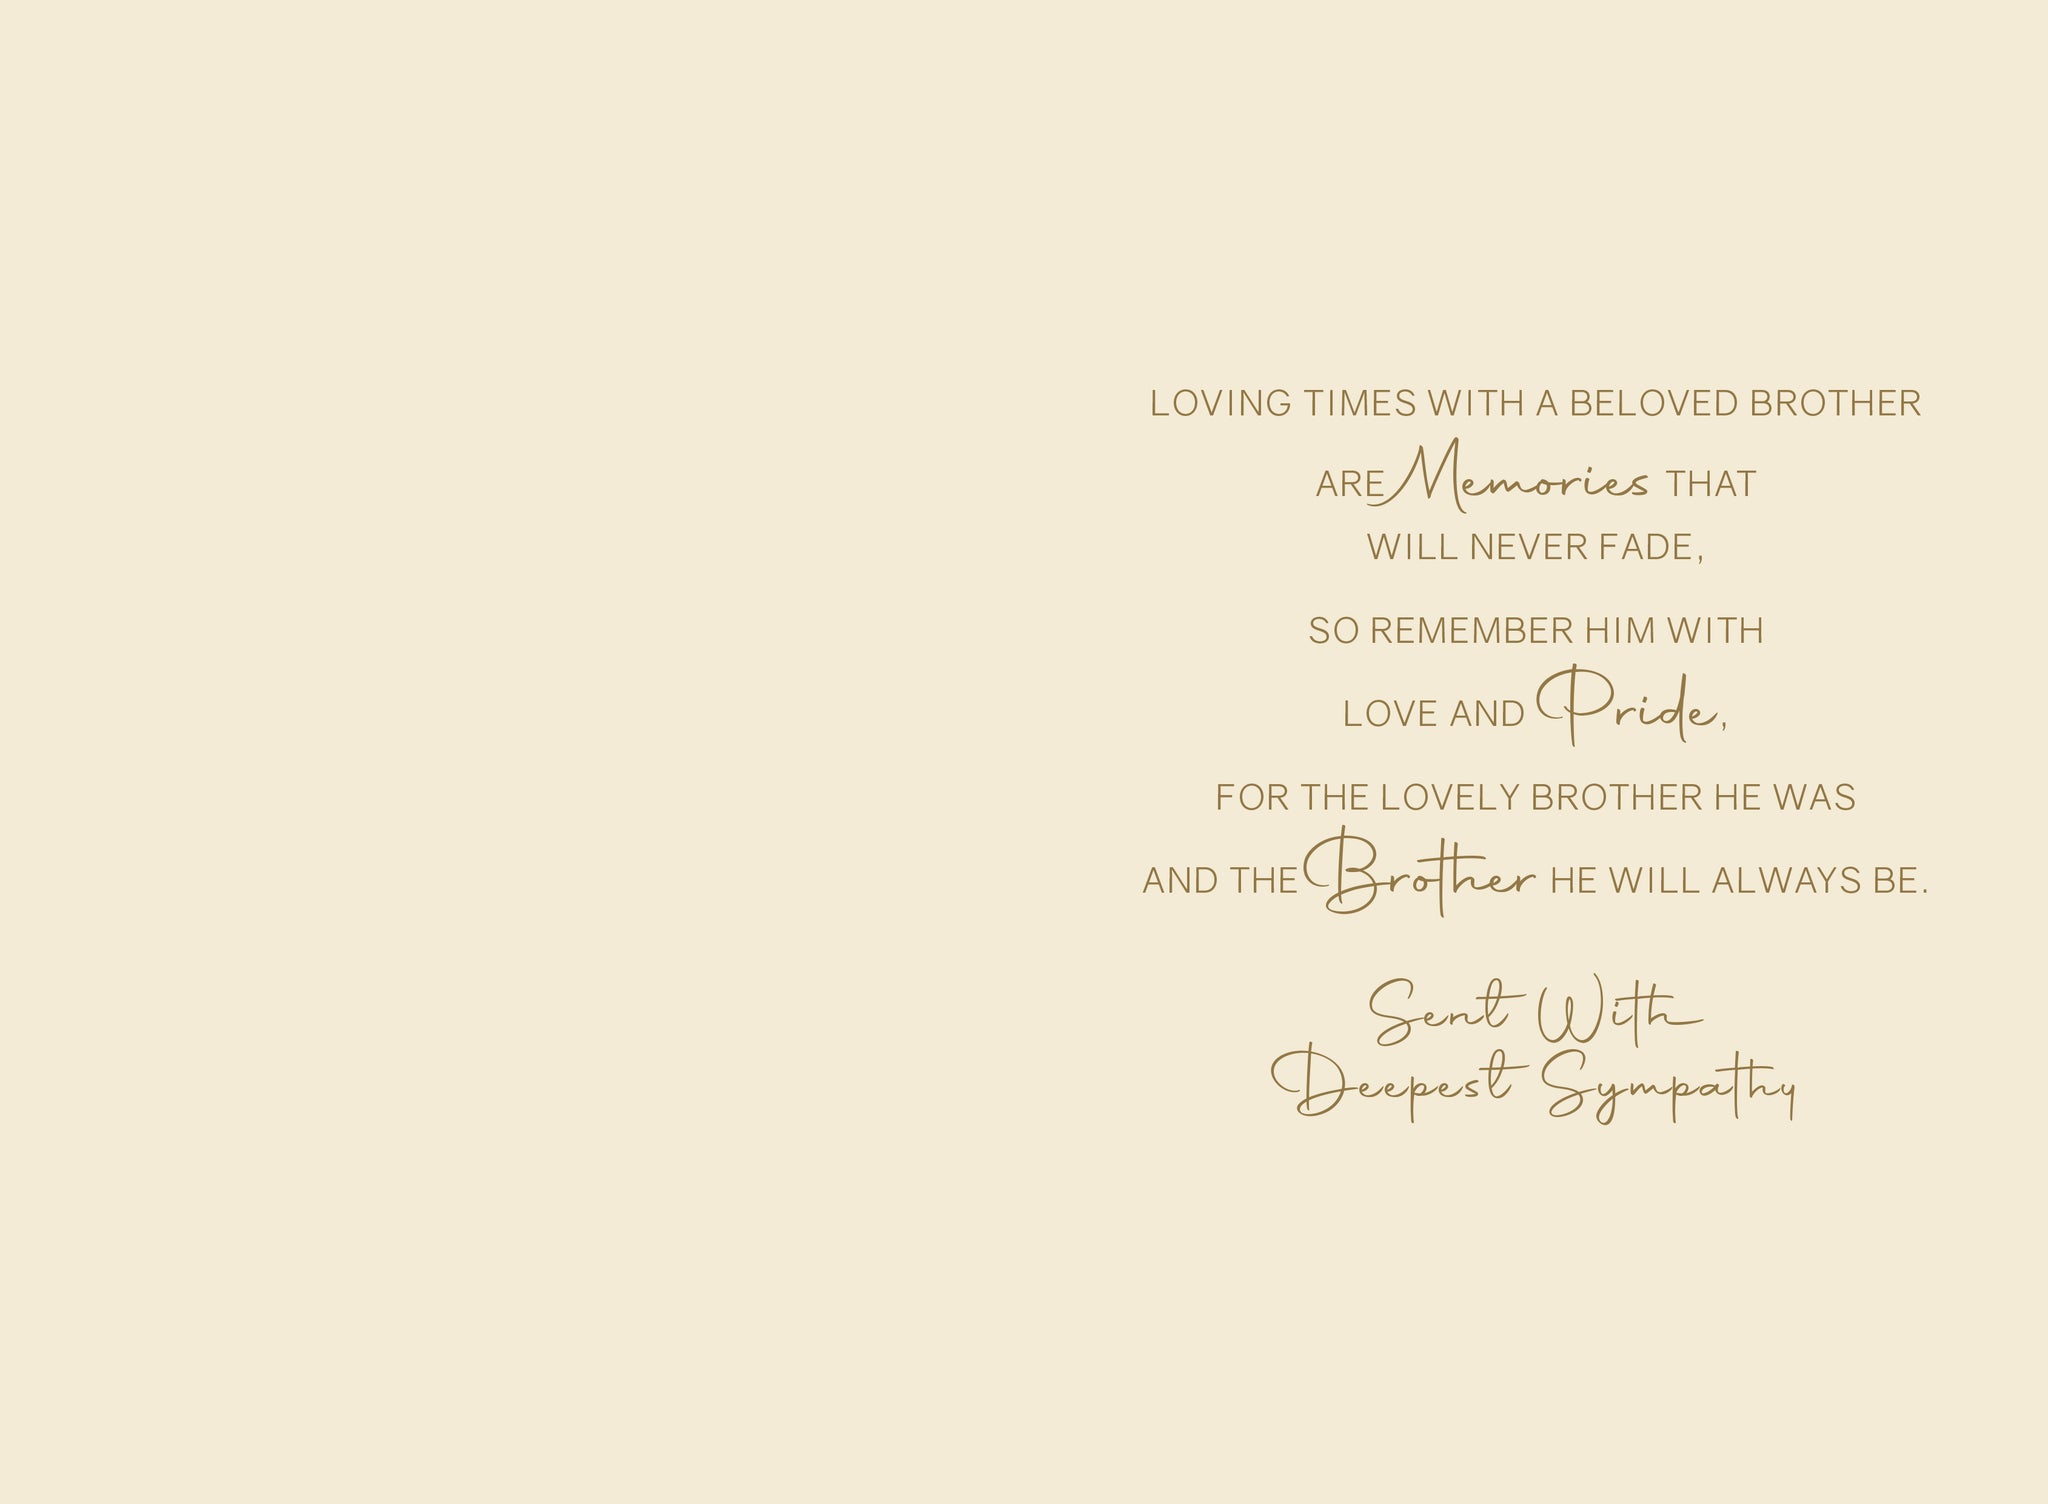 LOVING TIMES WITH A BELOVED BROTHER
ARE Memories THAT
WILL NEVER FADE,
SO REMEMBER HIM WITH
LOVE AND Pride,
FOR THE LOVELY BROTHER HE WAS
AND THE Brother HE WILL ALWAYS BE.
Sent With
Deepest Sympathy